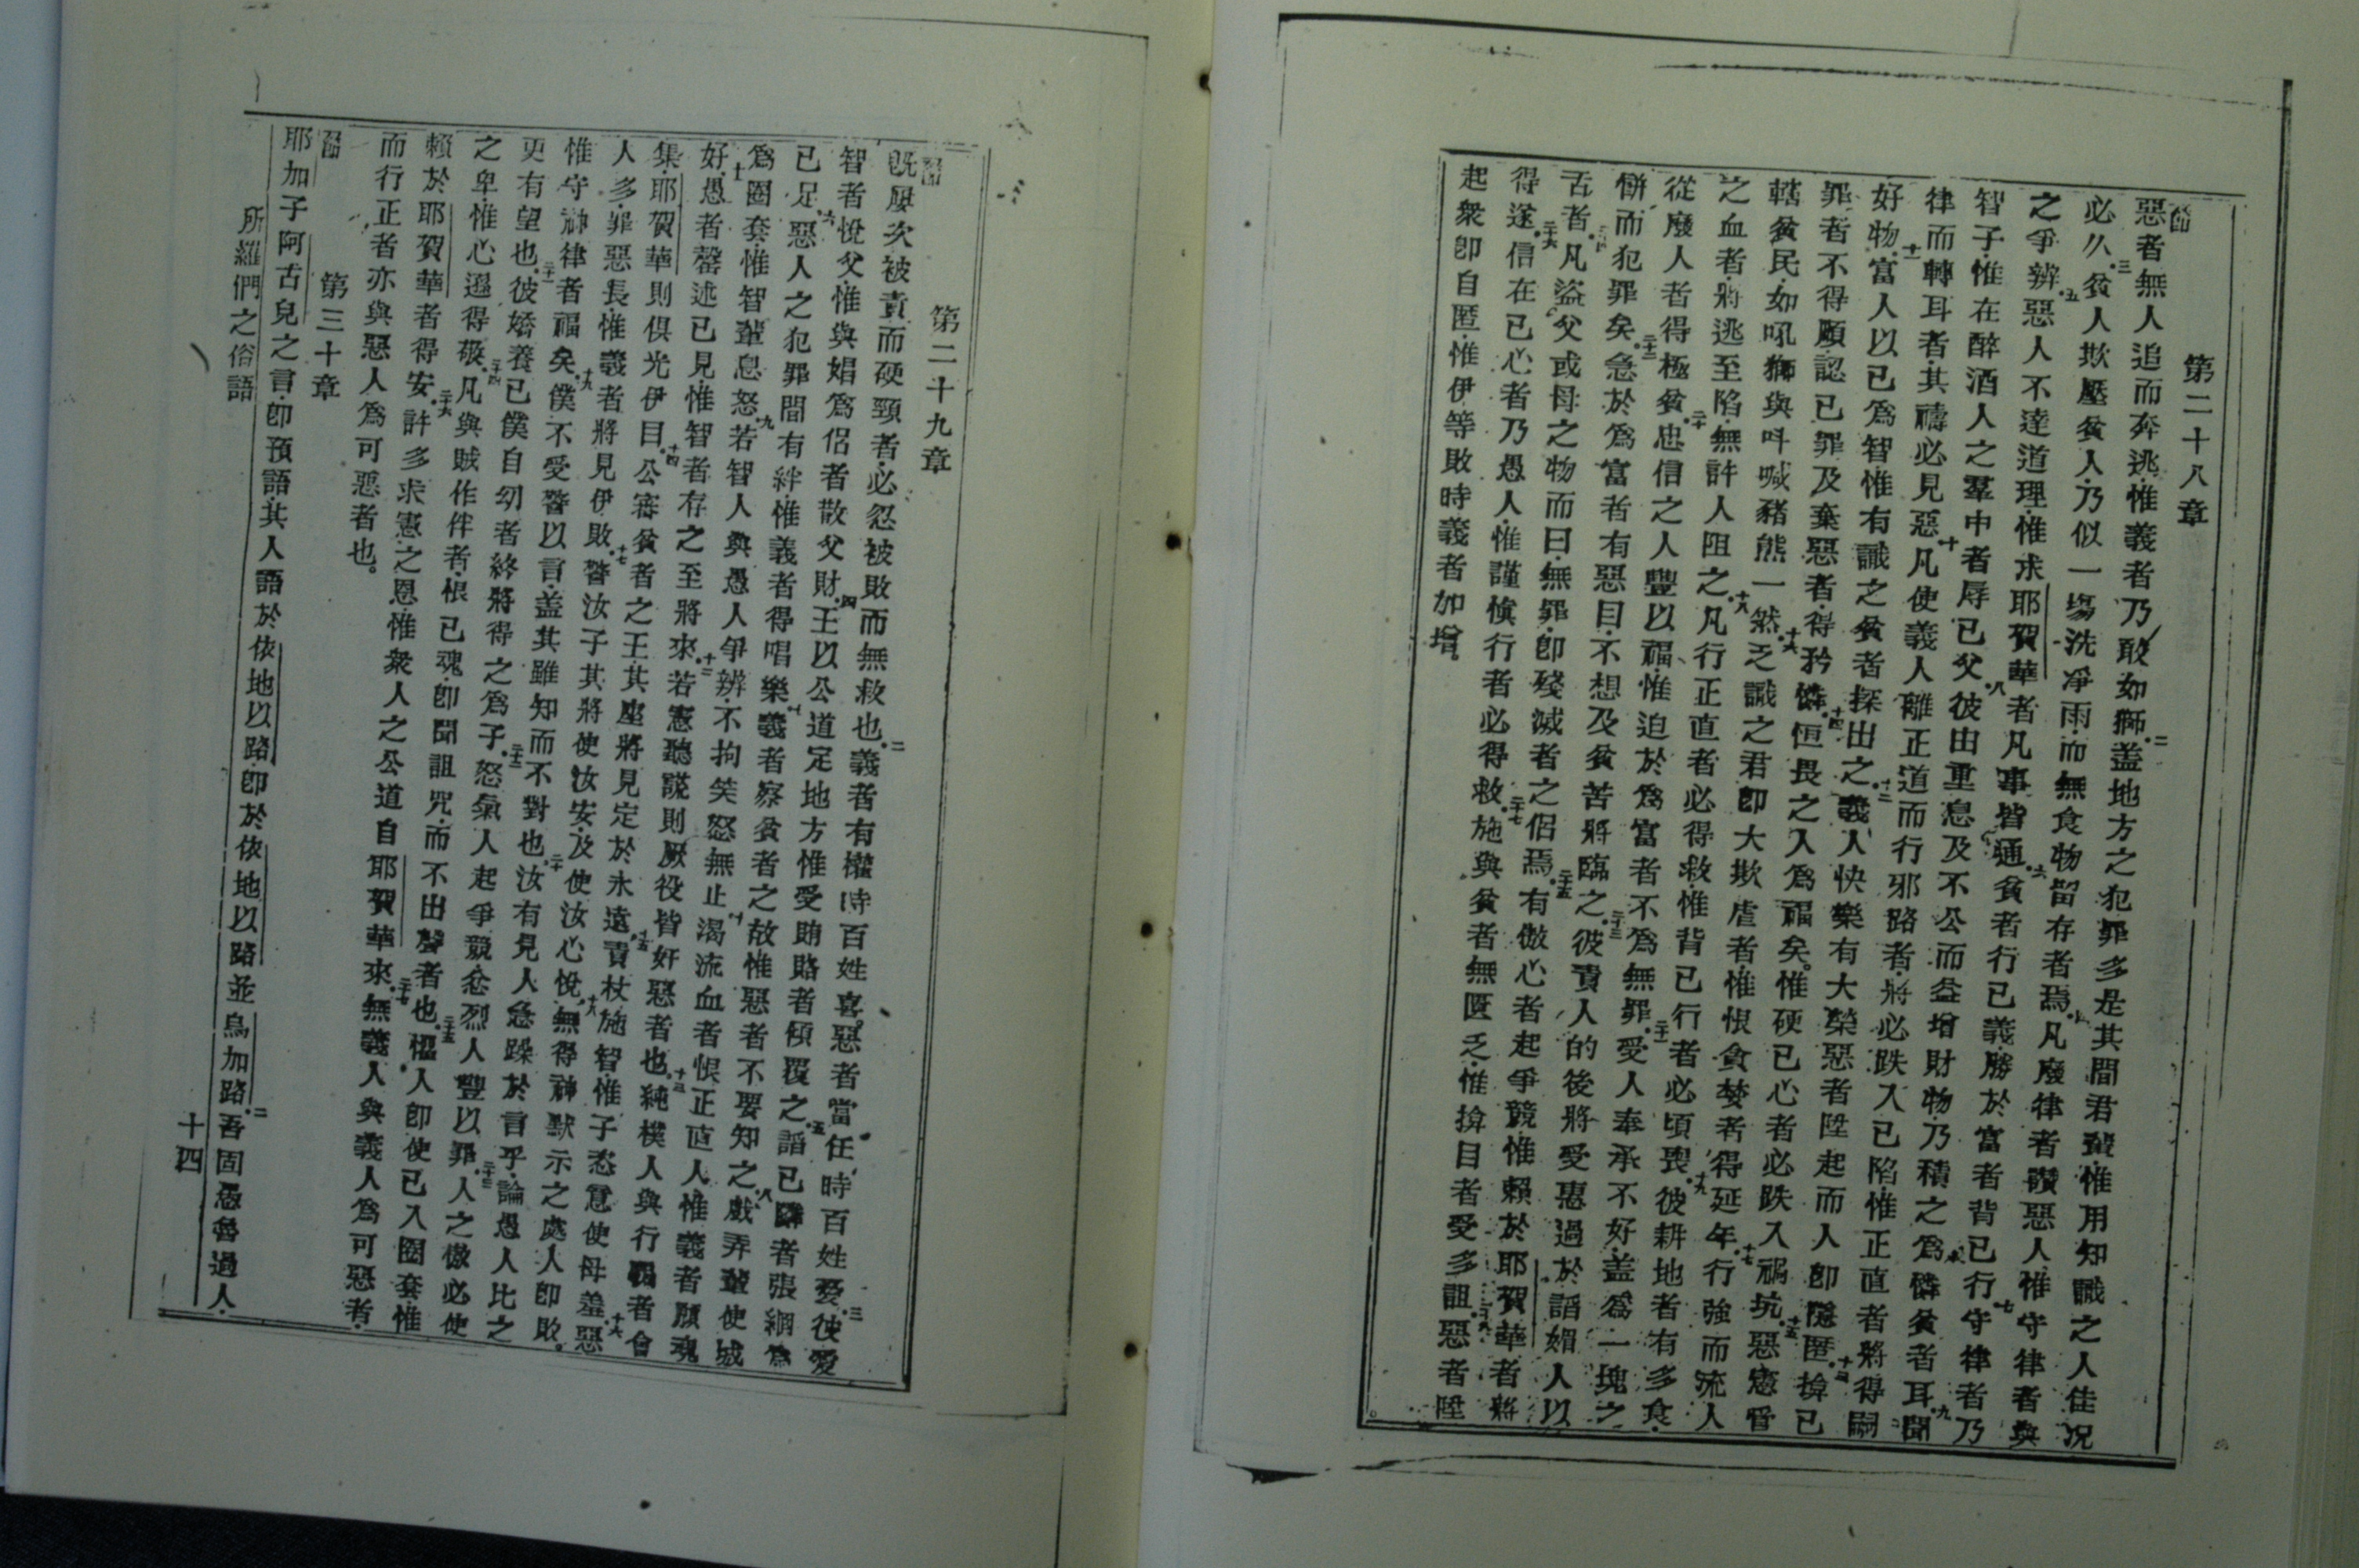 第二十八章
惡者無人追而奔逃惟義者乃敢如獅二盖地方之犯罪多是其間君輩惟用知識之人佳况
必久三貧人欺壓貧人乃似一塲洗凈雨而無食物留存者焉凡廢律者讚惡人惟守律者與
之爭辨五惡人不達道理惟求耶賀華者凡事皆通六貧者行已義勝於富者背已行七守律者乃
智子惟在醉酒人之羣中者辱已父八彼由重息及不公而益增財物乃積之爲憐貧者耳九聞
律而轉耳者其禱必見惡十凡使義人離正道而行邪路者將必跌入已陷惟正直者將得嗣
好物十一富人以已爲智惟有識之貧者探出之十二義人快樂有大榮惡者陞起而人卽隱匿十三揜已
罪者不得願認已罪及棄惡者得矜憐十四恒畏之人爲福矣惟硬已心者必跌入禍坑十五惡憲管
轄貧民如吼獅與呌喊豬熊一然十六乏識之君卽大欺虐者惟恨貪婪者得延年十七行強而流人
之血者將逃至陷無許人阻之十八凡行正直者必得救惟背已行者必頃喪十九彼耕地者有多食
從廢人者得極貧二十忠信之人豐以福惟迫於爲富者不爲無罪二十一受人奉承不好盖爲一塊之
餅而犯罪矣二十二急於爲富者有惡目不想及貧苦將臨之二十三彼責人的後將受惠過於謟媚人以
舌者二十四凡盜父或母之物而曰無罪卽殘滅者之侶焉二十五有傲心者起爭競惟賴於耶賀華者將
得遂二十六信在已心者乃愚人惟謹愼行者必得救二十七施與貧者無匱乏惟揜目者受多詛二十八惡者陞
起衆卽自匿惟伊等敗時義者加增
第二十九章
旣屢次被責而硬頸者必忽被敗而無救也二義者有權時百姓喜惡者當任時百姓憂三彼愛
智者悅父惟與娼爲侶者散父財四王以公道定地方惟受賄賂者傾覆之五謟已隣者張網爲
已足六惡人之犯罪間有絆惟義者得唱樂七義者察貧者之故惟惡者不要知之八戲弄輩使城
爲圈套惟智輩息怒九若智人與愚人爭辨不拘笑怒無止十渴流血者恨正直人惟義者願魂
好十一愚者罄述已見惟智者存之至將來十二若憲聽謊則厥役皆好惡者也十三純樸人與行覇者會
集耶賀華則俱光伊目十四公審貧者之王其座將見定於永遠十五責杖施智惟子恣意使母羞十六惡
人多罪惡長惟義者將見伊敗十七警汝子其將使汝安及使汝心悅十八無得神默示之處人卽敗
惟守神律者福矣十九僕不受警以言盖其雖知而不對也二十汝有見人急躁於言乎論愚人比之
更有望也二十一彼嬌養已僕自幼者終將得之爲子二十二怒氣人起爭競忿烈人豐以罪二十三人之傲必使
之卑惟心遜得敬二十四凡與賊作伴者恨已魂卽聞詛咒而不出聲者也二十五愠人卽使已入圈套惟
賴於耶賀華者得安二十六許多求憲之恩惟衆人之公道自耶賀華來二十七無義人與義人爲可惡者
而行正者亦與惡人爲可惡者也
第三十章
耶加子阿古兒之言卽預語其人語於依地以路卽於依地以路並烏加路二吾固愚魯過人
所羅們之俗語
十四